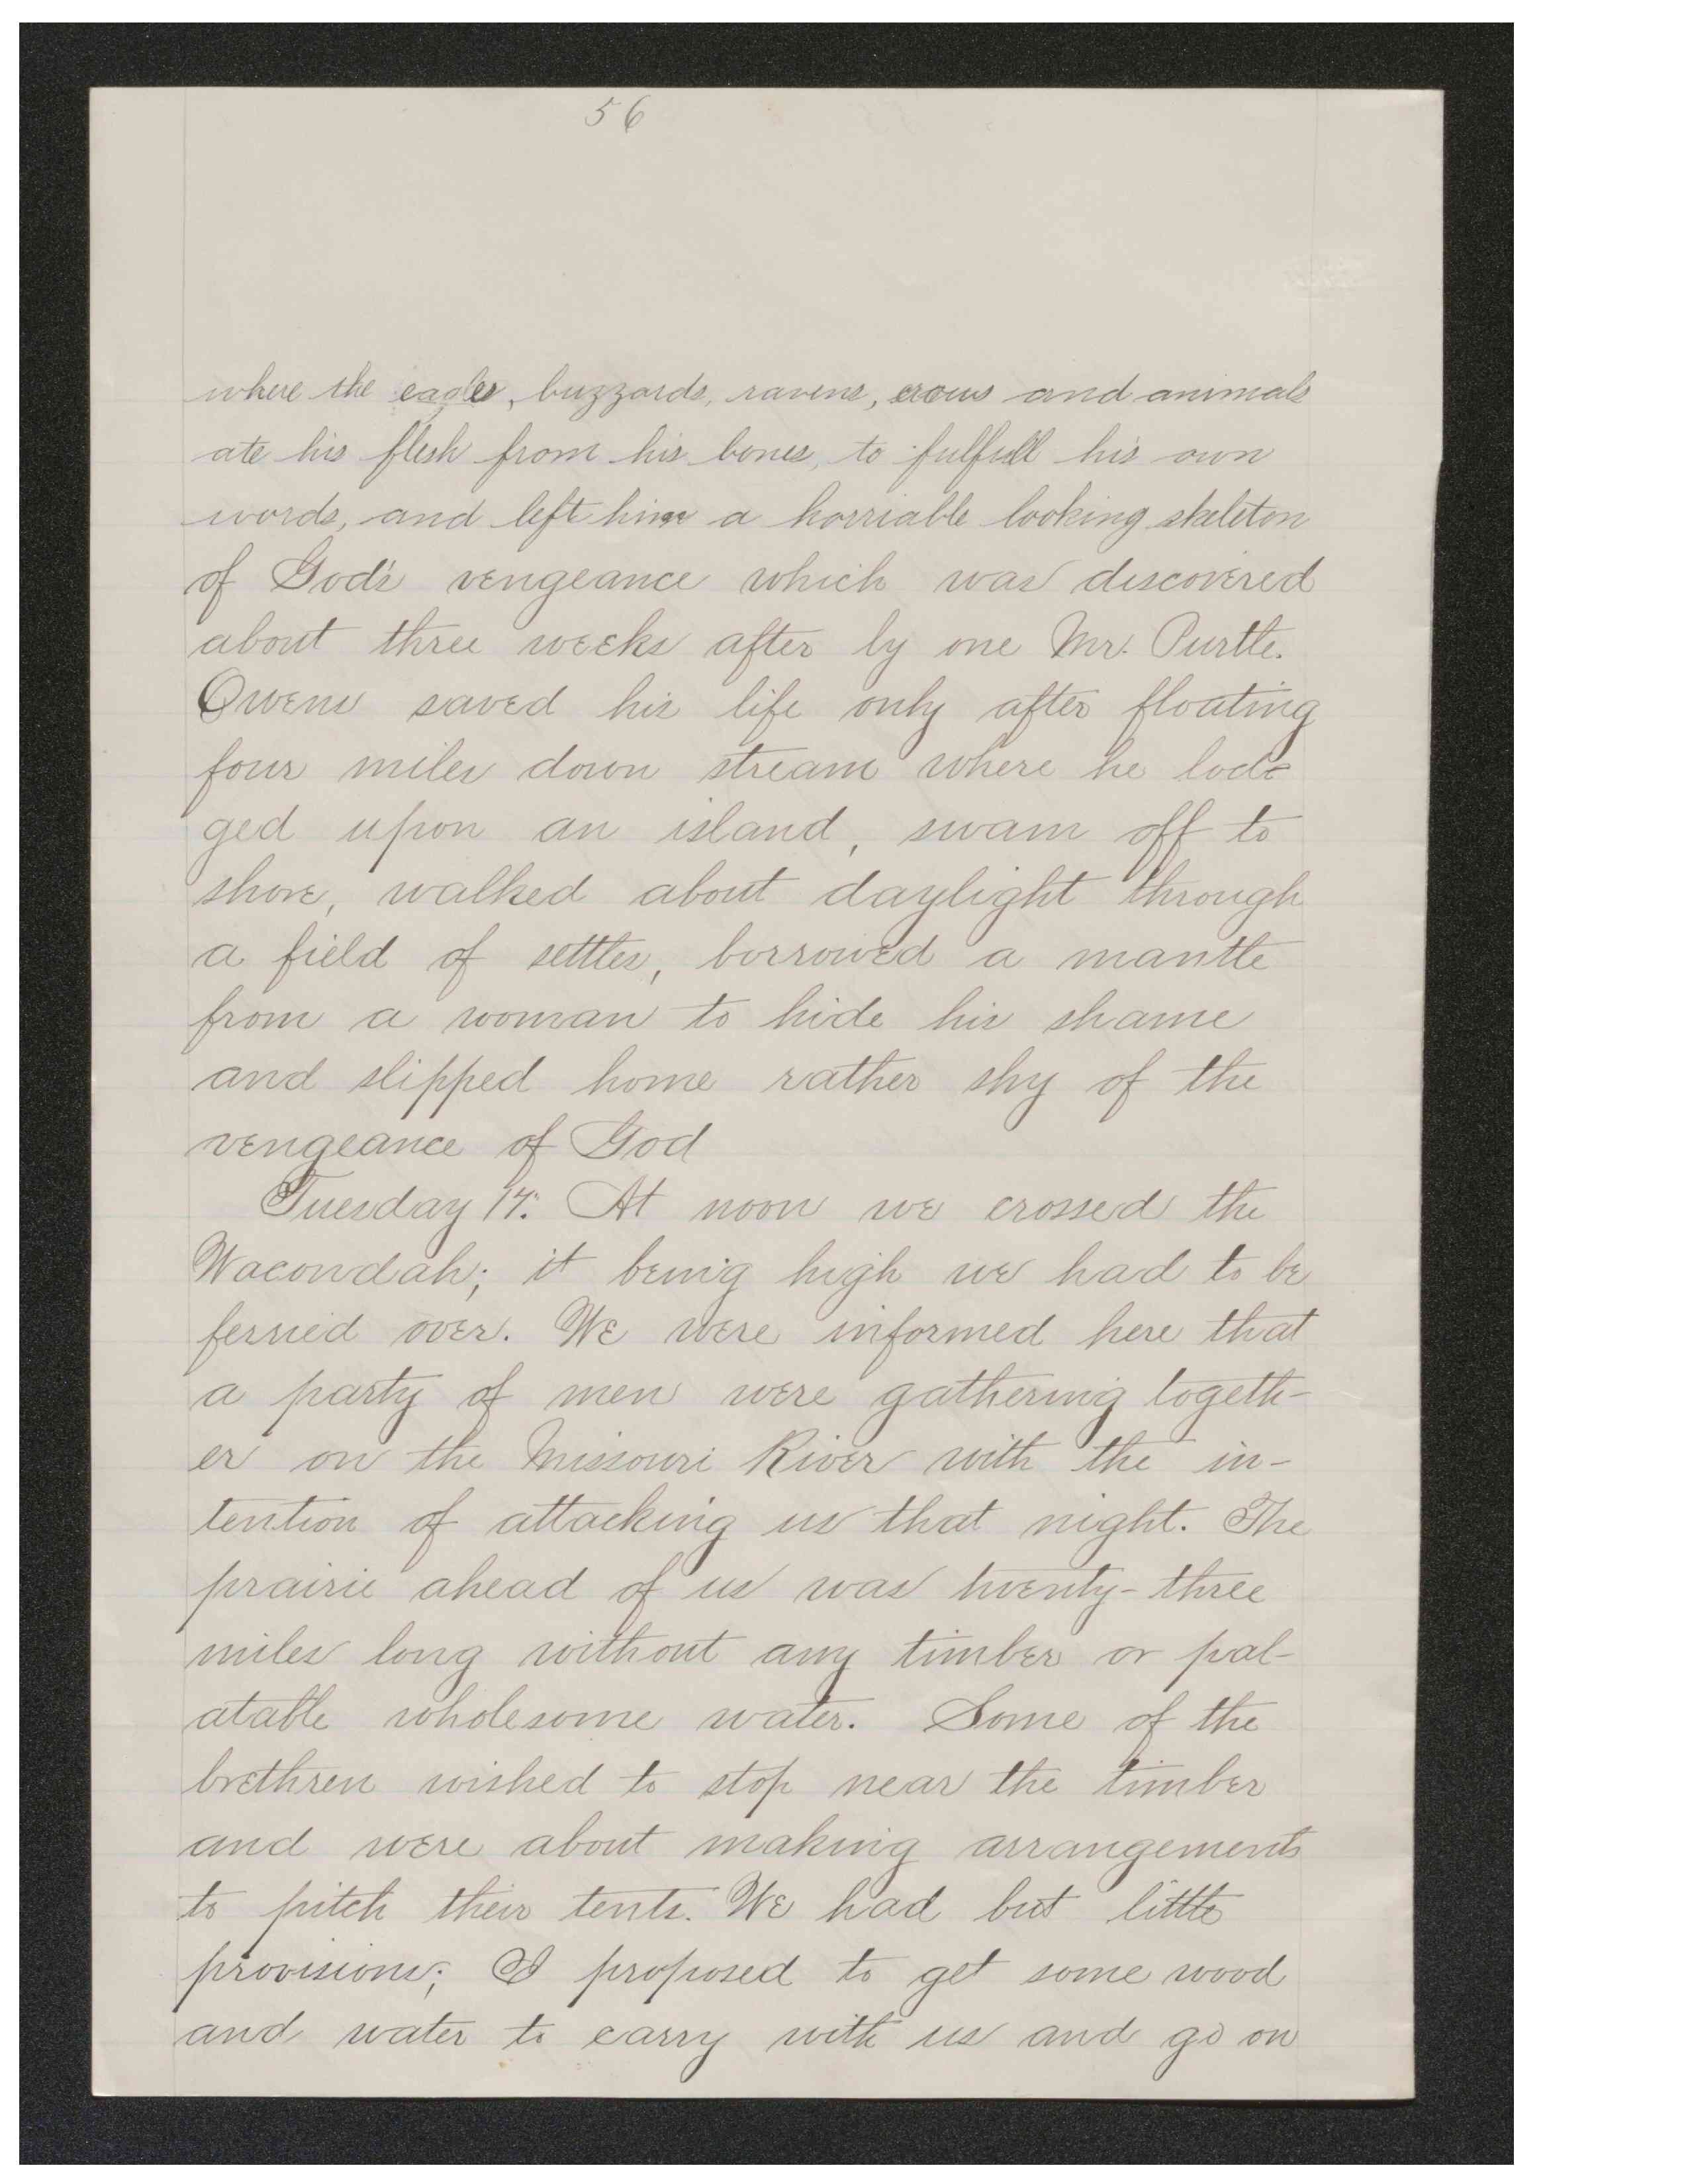 56
where the eagles, buzzards, ravens, crows and animals
ate his flesh from his bones, to fulfull his own
words, and left him a horriable looking skeleton
of God's vengeance which was discovered
about three weeks after by one Mr. Purtle.
Owens saved his life only after floating
four miles down stream where he lod-
ged upon an island, swam off to
shore, walked about daylight through
a field of settles, borrowed a mantle
from a woman to hide his shame
and slipped home rather shy of the
vengeance of God
Tuesday 17. At noon we crossed the
Wacondah; it being high we had to be
ferried over. We were informed here that
a party of men were gathering togeth-
er on the Missouri River with the in-
tention of attacking us that night. The
prairie ahead of us was twenty-three
miles long without any timber or pal-
atable wholesome water. Some of the
brethren wished to stop near the timber
and were about making arrangements
to pitch their tents. We had but little
provisions; I proposed to get some wood
and water to carry with us and go on